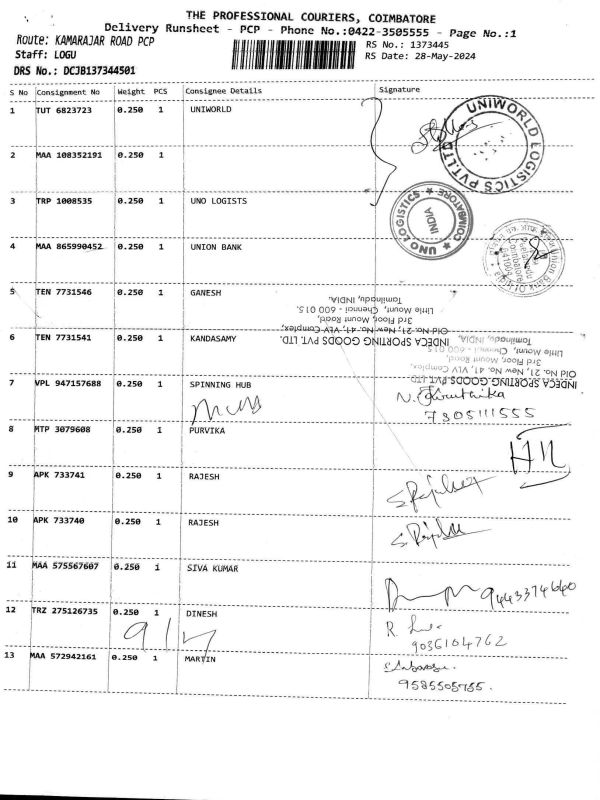 THE PROFESSIONAL COURIERS, COIMBATORE
Delivery Runsheet - PCP - Phone No.:0422-3505555 - Page No.:1
Route: KAMARAJAR ROAD PCP
RS No.: 1373445
Staff: LOGU
RS Date: 28-May-2024
DRS No.: DCJB137344501
S No Consignment No Weight PCS Consignee Details Signature
1 TUT 6823723 0.250 1 UNIWORLD
UNIWORLD LOGISTICS PVT.LTD
2 MAA 108352191 0.250 1
3 TRP 1008535 0.250 1 UNO LOGISTS
UNO LOGISTICS COIMBATORE
INDIA
4 MAA 865990452 0.250 1 UNION BANK
Union Bank Of India
Coimbatore
5 TEN 7731546 0.250 1 GANESH
INDECA SPORTING GOODS PVT. LTD.
Old No. 21, New No. 41, VLV Complex,
3rd Floor, Mount Road,
Little Mount, Chennai - 600 015.
Tamilnadu, INDIA.
6 TEN 7731541 0.250 1 KANDASAMY
INDECA SPORTING GOODS PVT. LTD.
Old No. 21, New No. 41, VLV Complex,
3rd Floor, Mount Road,
Little Mount, Chennai - 600 015
Tamilnadu, INDIA.
7 VPL 947157688 0.250 1 SPINNING HUB
7305111555
8 MTP 3079608 0.250 1 PURVIKA
9 APK 733741 0.250 1 RAJESH
10 APK 733740 0.250 1 RAJESH
11 MAA 575567607 0.250 1 SIVA KUMAR
9443374640
12 TRZ 275126735 0.250 1 DINESH
9036104762
13 MAA 572942161 0.250 1 MARTIN
9585505755.